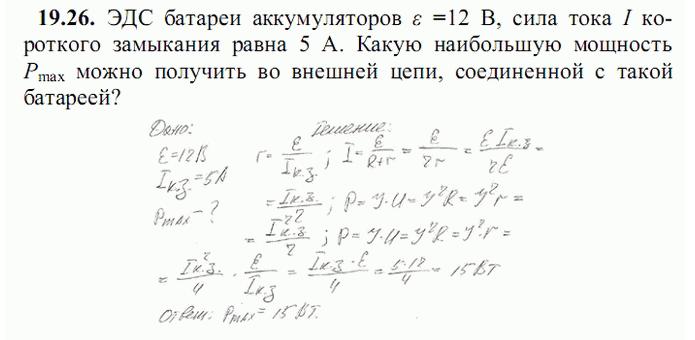 19.26. ЭДС батареи аккумуляторов ε =12 В, сила тока I ко-
роткого замыкания равна 5 А. Какую наибольшую мощность
Pmax можно получить во внешней цепи, соединенной с такой
батареей?
Дано: Решение:
ε=12В r= ε/Iк.з. ; I= ε/(R+r) = ε/2r = εIк.з/2ε =
Iк.з.=5А
Pmax-? = Iк.з./2 ; P= У·U= У²R= У²r =
= Iк.з/2 ; P= У·U= У²R= У²·r =
= Iк.з.²/4 · ε/Iк.з = Iк.з·ε/4 = 5·12/4 = 15 Вт
Ответ: Pmax= 15 Вт.